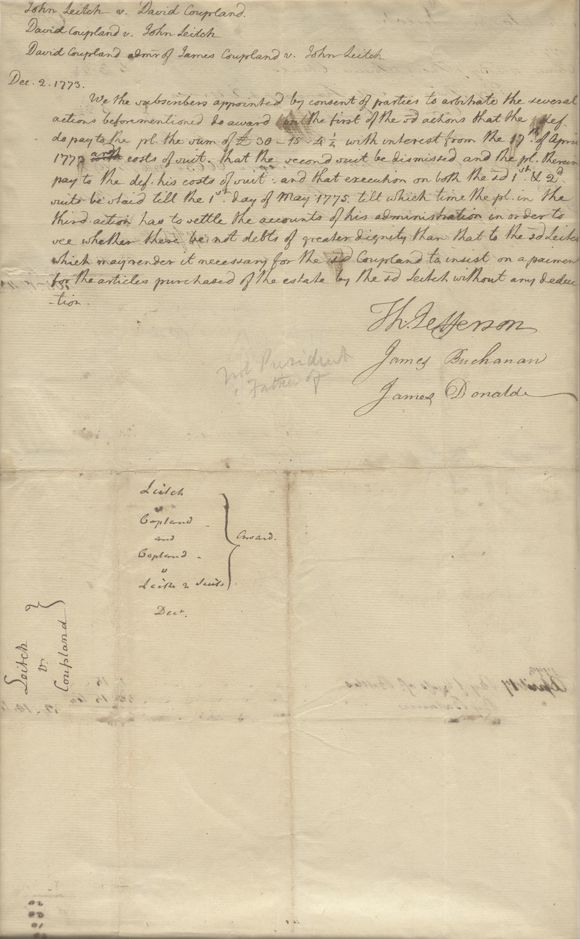 John Leitch v. David Coupland.
David Coupland v. John Leitch
David Coupland admr of James Coupland v. John Leitch
Dec. 2. 1773.
We the subscribers appointed by consent of parties to arbitrate the several
actions beforementioned do award in the first of the sd actions that the def.
do pay to the pl. the sum of £ 30 - 15 - 4 1/2 with interest from the 17th of April
177 costs of suit, that the second suit be dismissed and the pl. therein
pay to the def. his costs of suit. and that execution on both the sd 1st & 2d
suits be staid till the 1st day of May 1775. till which time the pl. in the
third action has to settle the accounts of his administration in order to
see whether there be not debts of greater dignity than that to the sd Leitch
which may render it necessary for the sd Coupland to insist on a paiment
for the articles purchased of the estate by the sd Leitch without any deduc
-tion.
Th. Jefferson
James Buchanan
James Donald
President
Father of
Leitch
v
Copland
and
Copland
v
Leitch 2 Suits
Award.
Decr.
Leitch
v.
Coupland